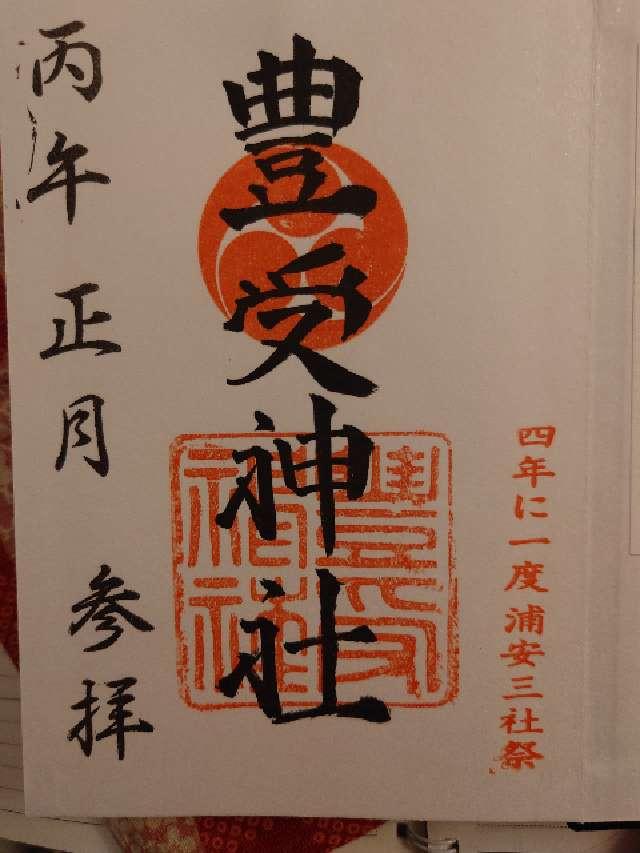 四年に一度浦安三社祭
豊受神社
丙午 正月 参拝